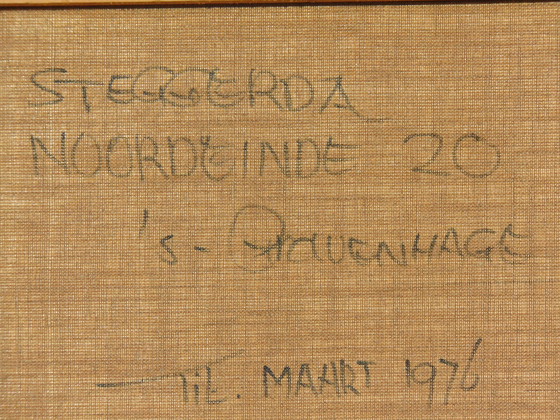 STEGGERDA
NOORDEINDE 20
's-GRAVENHAGE
MAART 1976